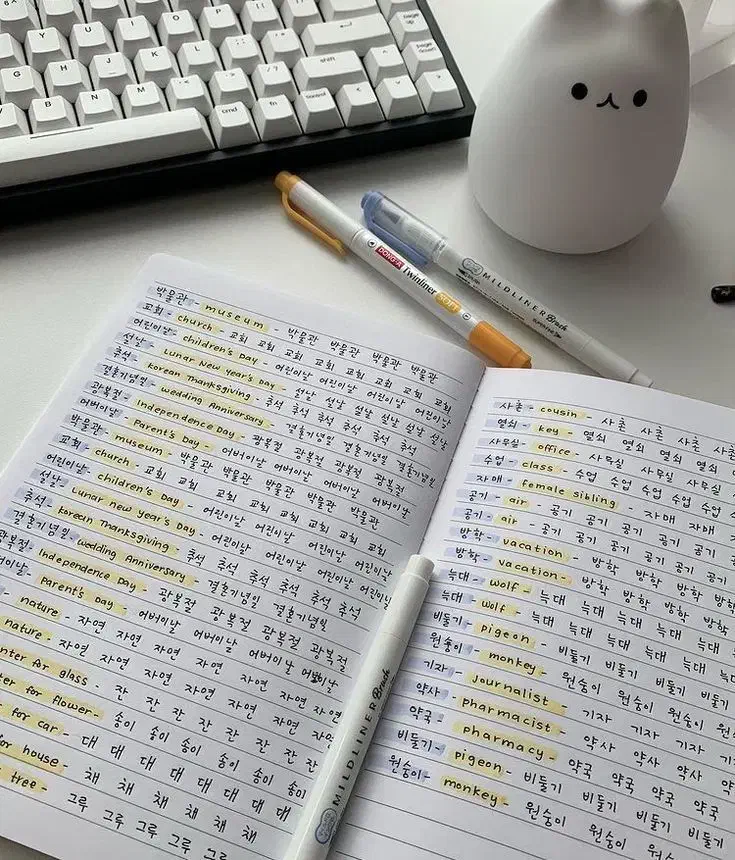 Y U I O P
G H J K L
V B N M
shift
cmd fn control
page up
page down
DONG-A Twinliner SOFT
MILDLINER Brush
박물관 - museum - 박물관 박물관 박물관 박물관
교회 - church - 교회 교회 교회 교회 교회 교회
어린이날 - children's Day - 어린이날 어린이날 어린이날 어린이날
설날 - Lunar New Year's Day - 설날 설날 설날 설날 설날 설날
추석 - Korean Thanksgiving - 추석 추석 추석 추석 추석
결혼기념일 - wedding Anniversary - 결혼기념일 결혼기념일 결혼기념일
광복절 - Independence Day - 광복절 광복절 광복절 광복절
어버이날 - Parent's Day - 어버이날 어버이날 어버이날
박물관 - museum - 박물관 박물관 박물관 박물관
교회 - church - 교회 교회 교회 교회 교회 교회
어린이날 - children's Day - 어린이날 어린이날 어린이날 어린이날
설날 - Lunar New Year's Day - 설날
추석 - Korean Thanksgiving - 추석 추석 추석 추석 추석
결혼기념일 - wedding Anniversary - 결혼기념일 결혼기념일
광복절 - Independence Day - 광복절 광복절 광복절 광복절
Parent's Day - 어버이날 어버이날 어버이날
- nature - 자연 자연 자연 자연 자연 자연
nature - 자연 자연 자연 자연 자연 자연
for glass - 잔 잔 잔 잔 잔 잔 잔
for flower - 송이 송이 송이 송이 송이 송이
for car - 대 대 대 대 대 대 대 대
for house - 채 채 채 채 채 채
tree - 그루 그루 그루 그루 그루
MILDLINER Brush
사촌 - cousin - 사촌 사촌 사촌 사촌
열쇠 - key - 열쇠 열쇠 열쇠 열쇠
사무실 - office - 사무실 사무실 사무실
수업 - class - 수업 수업 수업 수업
자매 - female sibling - 자매 자매
공기 - air - 공기 공기 공기 공기 공기
공기 - air - 공기 공기 공기 공기 공기
방학 - vacation - 방학 방학 방학 방학
방학 - vacation - 방학 방학 방학 방학
늑대 - wolf - 늑대 늑대 늑대 늑대 늑대
늑대 - wolf - 늑대 늑대 늑대 늑대 늑대
비둘기 - pigeon - 비둘기 비둘기 비둘기
원숭이 - monkey - 원숭이 원숭이 원숭이
기자 - journalist - 기자 기자 기자
약사 - pharmacist - 약사 약사 약사 약사
약국 - pharmacy - 약국 약국 약국 약국
비둘기 - pigeon - 비둘기 비둘기 비둘기 비둘기
원숭이 - monkey - 원숭이 원숭이 원숭이